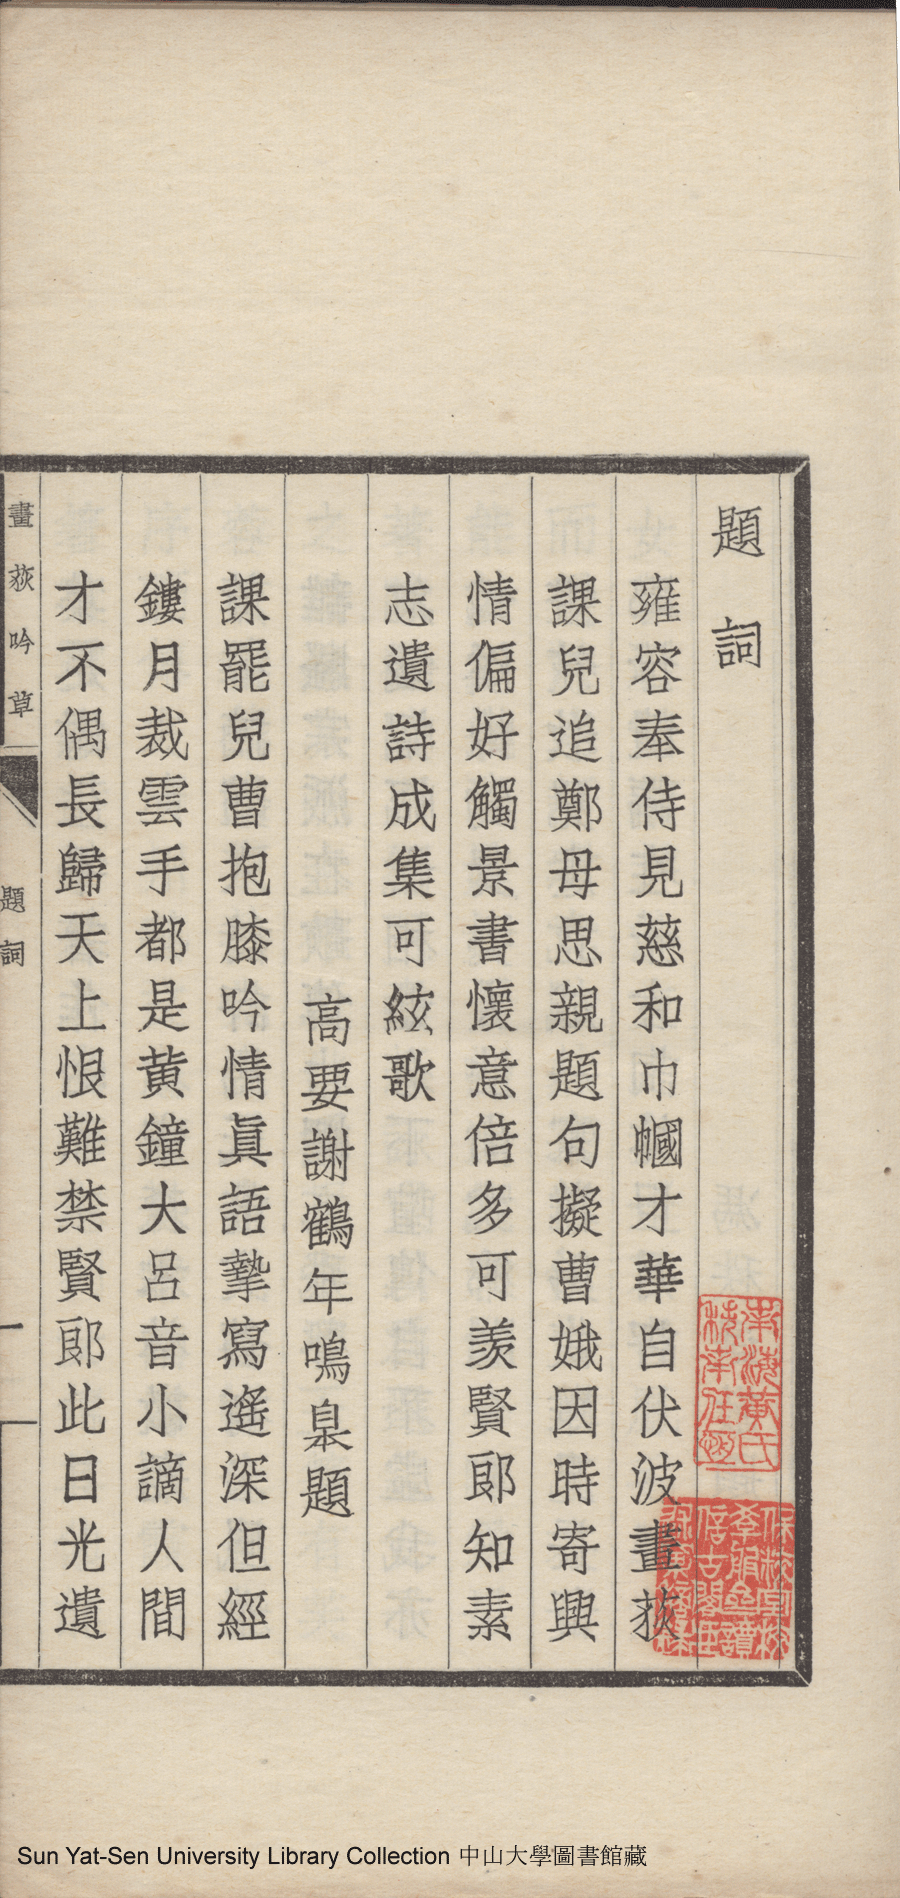 題詞
雍容奉侍見慈和巾幗才華自伏波畫荻
課兒追鄭母思親題句擬曹娥因時寄興
情偏好觸景書懷意倍多可羨賢郎知素
志遺詩成集可絃歌
高要謝鶴年鳴臯題
課罷兒曹抱膝吟情眞語摯寫遙深但經
鏤月裁雲手都是黃鐘大呂音小謫人間
才不偶長歸天上恨難禁賢郎此日光遺
畫荻吟草
題詞
一
南海黃氏
Sun Yat-Sen University Library Collection 中山大學圖書館藏